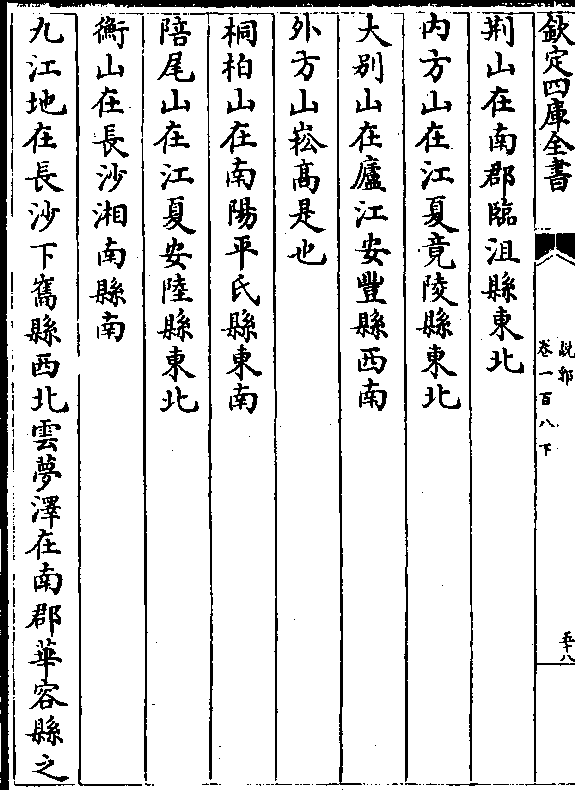 欽定四庫全書
說郛
卷一百八下
五十八
荆山在南郡臨沮縣東北
内方山在江夏竟陵縣東北
大别山在廬江安豐縣西南
外方山崧髙是也
桐柏山在南陽平氏縣東南
陪尾山在江夏安陸縣東北
衡山在長沙湘南縣南
九江地在長沙下雋縣西北雲夢澤在南郡華容縣之